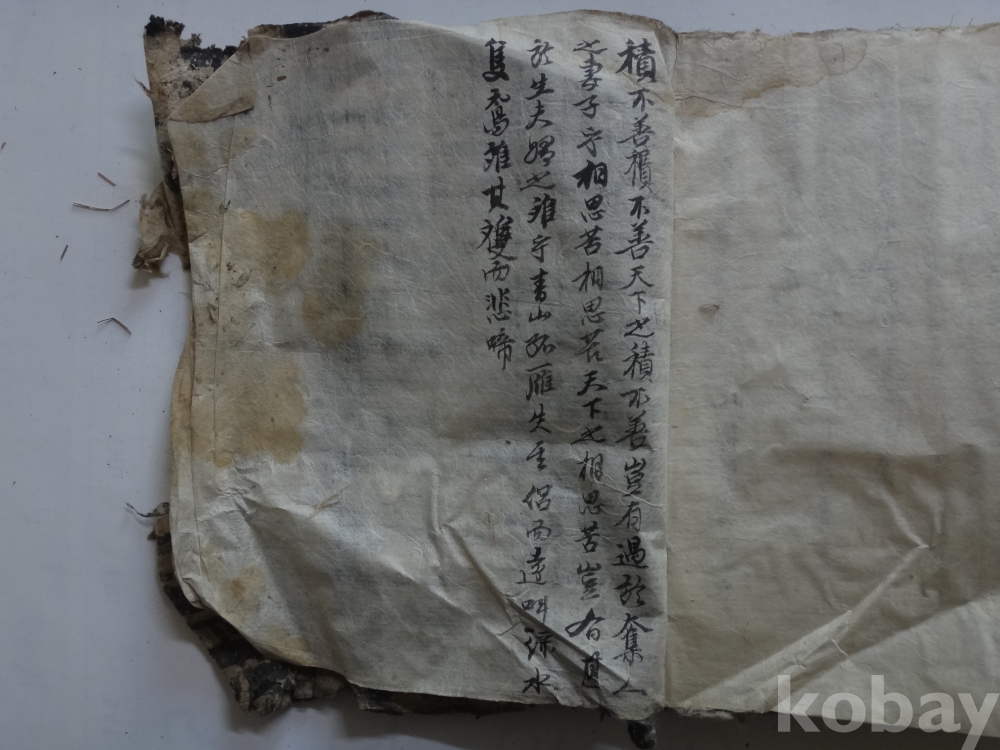 積不善積不善天下之積不善豈有過於奪人
之妻子乎相思苦相思苦天下之相思苦豈有甚
於生夫婦之離乎青山孤雁失其侶而遠叫綠水
隻鴦離其雙而悲啼
kobay